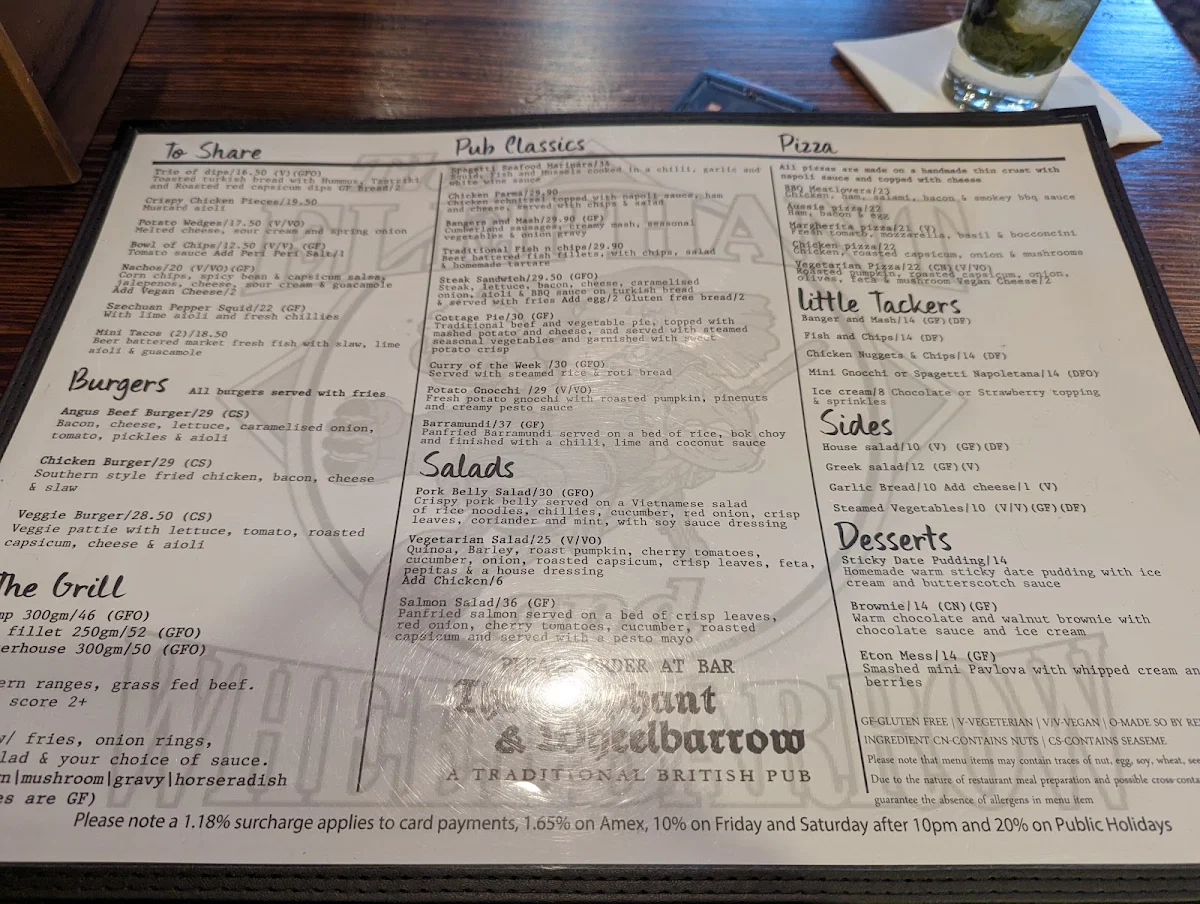 To Share
Trio of dips/16.50 (V)(GFO)
Toasted turkish bread with Hummus, Tzatziki
and Roasted red capsicum dips GF Bread/2
Crispy Chicken Pieces/19.50
Mustard aioli
Potato Wedges/17.50 (V/VO)
Melted cheese, sour cream and spring onion
Bowl of Chips/12.50 (V/V) (GF)
Tomato sauce Add Peri Peri Salt/1
Nachos/20 (V/VO)(GF)
Corn chips, spicy bean & capsicum salsa,
jalepenos, cheese, sour cream & guacamole
Add Vegan Cheese/2
Szechuan Pepper Squid/22 (GF)
With lime aioli and fresh chillies
Mini Tacos (2)/18.50
Beer battered market fresh fish with slaw, lime
aioli & guacamole
Burgers All burgers served with fries
Angus Beef Burger/29 (CS)
Bacon, cheese, lettuce, caramelised onion,
tomato, pickles & aioli
Chicken Burger/29 (CS)
Southern style fried chicken, bacon, cheese
& slaw
Veggie Burger/28.50 (CS)
Veggie pattie with lettuce, tomato, roasted
capsicum, cheese & aioli
The Grill
300gm/46 (GFO)
fillet 250gm/52 (GFO)
300gm/50 (GFO)
ranges, grass fed beef.
score 2+
w/ fries, onion rings,
& your choice of sauce.
|mushroom|gravy|horseradish
are GF)
Pub Classics
Spagetti Seafood Marinara/38
Squid, Fish and Mussels cooked in a chilli, garlic and
white wine sauce
Chicken Parma/29.90
Chicken schnitzel topped with napoli sauce, ham
and cheese, served with chips & salad
Bangers and Mash/29.90 (GF)
Cumberland sausages, creamy mash, seasonal
vegetables & onion gravy
Traditional Fish n chips/29.90
Beer battered fish fillets, with chips, salad
& homemade tartare
Steak Sandwich/29.50 (GFO)
Steak, lettuce, bacon, cheese, caramelised
onion, aioli & BBQ sauce on turkish bread
& served with fries Add egg/2 Gluten free bread/2
Cottage Pie/30 (GF)
Traditional beef and vegetable pie, topped with
mashed potato and cheese, and served with steamed
seasonal vegetables and garnished with sweet
potato crisp
Curry of the Week /30 (GFO)
Served with steamed rice & roti bread
Potato Gnocchi /29 (V/VO)
Fresh potato gnocchi with roasted pumpkin, pinenuts
and creamy pesto sauce
Barramundi/37 (GF)
Panfried Barramundi served on a bed of rice, bok choy
and finished with a chilli, lime and coconut sauce
Salads
Pork Belly Salad/30 (GFO)
Crispy pork belly served on a Vietnamese salad
of rice noodles, chillies, cucumber, red onion, crisp
leaves, coriander and mint, with soy sauce dressing
Vegetarian Salad/25 (V/VO)
Quinoa, Barley, roast pumpkin, cherry tomatoes,
cucumber, onion, roasted capsicum, crisp leaves, feta,
pepitas & a house dressing
Add Chicken/6
Salmon Salad/36 (GF)
Panfried salmon served on a bed of crisp leaves,
red onion, cherry tomatoes, cucumber, roasted
capsicum and served with a pesto mayo
PLEASE ORDER AT BAR
The Elephant
& Wheelbarrow
A TRADITIONAL BRITISH PUB
Pizza
All pizzas are made on a handmade thin crust with
napoli sauce and topped with cheese
BBQ Meatlovers/23
Chicken, ham, salami, bacon & smokey bbq sauce
Aussie pizza/22
Ham, bacon & egg
Margherita pizza/21 (V)
Fresh tomato, mozzarella, basil & bocconcini
Chicken pizza/22
Chicken, roasted capsicum, onion & mushrooms
Vegetarian Pizza/22 (CN)(V/VO)
Roasted pumpkin, roasted capsicum, onion,
olives, feta & mushroom Vegan Cheese/2
Little Tackers
Banger and Mash/14 (GF)(DF)
Fish and Chips/14 (DF)
Chicken Nuggets & Chips/14 (DF)
Mini Gnocchi or Spagetti Napoletana/14 (DFO)
Ice cream/8 Chocolate or Strawberry topping
& sprinkles
Sides
House salad/10 (V) (GF)(DF)
Greek salad/12 (GF)(V)
Garlic Bread/10 Add cheese/1 (V)
Steamed Vegetables/10 (V/V)(GF)(DF)
Desserts
Sticky Date Pudding/14
Homemade warm sticky date pudding with ice
cream and butterscotch sauce
Brownie/14 (CN)(GF)
Warm chocolate and walnut brownie with
chocolate sauce and ice cream
Eton Mess/14 (GF)
Smashed mini Pavlova with whipped cream an
berries
GF-GLUTEN FREE | V-VEGETERIAN | V/V-VEGAN | O-MADE SO BY RE
INGREDIENT CN-CONTAINS NUTS | CS-CONTAINS SEASEME
Please note that menu items may contain traces of nut, egg, soy, wheat, see
Due to the nature of restaurant meal preparation and possible cross-conta
guarantee the absence of allergens in menu item
Please note a 1.18% surcharge applies to card payments, 1.65% on Amex, 10% on Friday and Saturday after 10pm and 20% on Public Holidays